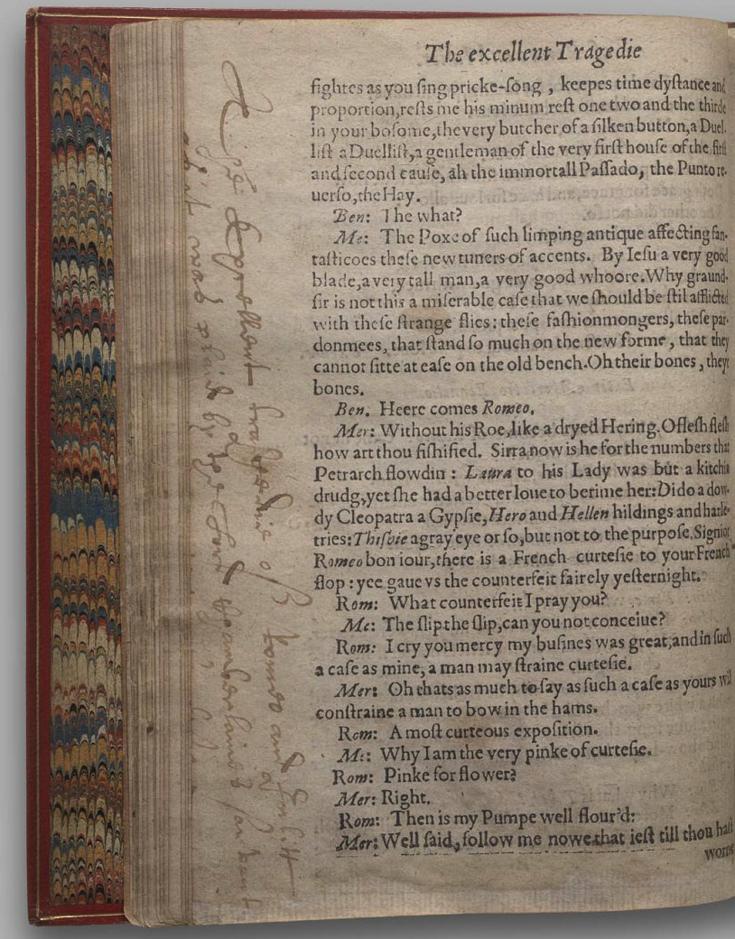 The excellent Tragedie
fightes as you ſing pricke-ſong , keepes time dyſtance and
proportion,reſts me his minum reſt one two and the thirde
in your boſome,the very butcher of a ſilken button,a Duel.
liſt a Duelliſt,a gentleman of the very firſt houſe of the firſt
and ſecond cauſe, ah the immortall Paſſado, the Punto re.
uerſo,the Hay.
Ben: The what?
Me: The Poxe of ſuch limping antique affecting fan-
taſticoes theſe new tuners of accents. By Ieſu a very good
blade,a very tall man,a very good whoore.Why graund-
ſir is not this a miſerable caſe that we ſhould be ſtil afflicted
with theſe ſtrange flies: theſe faſhionmongers, theſe par-
donmees, that ſtand ſo much on the new forme, that they
cannot ſitte at eaſe on the old bench.Oh their bones, theyr
bones.
Ben. Heere comes Romeo.
Mer: Without his Roe,like a dryed Hering. O fleſh fleſh
how art thou fiſhified. Sirra now is he for the numbers that
Petrarch flowdin : Laura to his Lady was but a kitchin
drudg,yet ſhe had a better loue to berime her:Dido a dow-
dy Cleopatra a Gypſie,Hero and Hellen hildings and harle-
tries: Thiſbie a gray eye or ſo,but not to the purpoſe.Signior
Romeo bon iour,there is a French curteſie to your French
flop : yee gaue vs the counterfeit fairely yeſternight.
Rom: What counterfeit I pray you?
Me: The ſlip the ſlip,can you not conceiue?
Rom: I cry you mercy my buſines was great,and in ſuch
a caſe as mine, a man may ſtraine curteſie.
Mer: Oh thats as much to ſay as ſuch a caſe as yours wil
conſtraine a man to bow in the hams.
Rom: A moſt curteous expoſition.
Me: Why I am the very pinke of curteſie.
Rom: Pinke for flower?
Mer: Right.
Rom: Then is my Pumpe well flour'd:
Mer: Well ſaid, follow me nowe that ieſt till thou haſt
worne